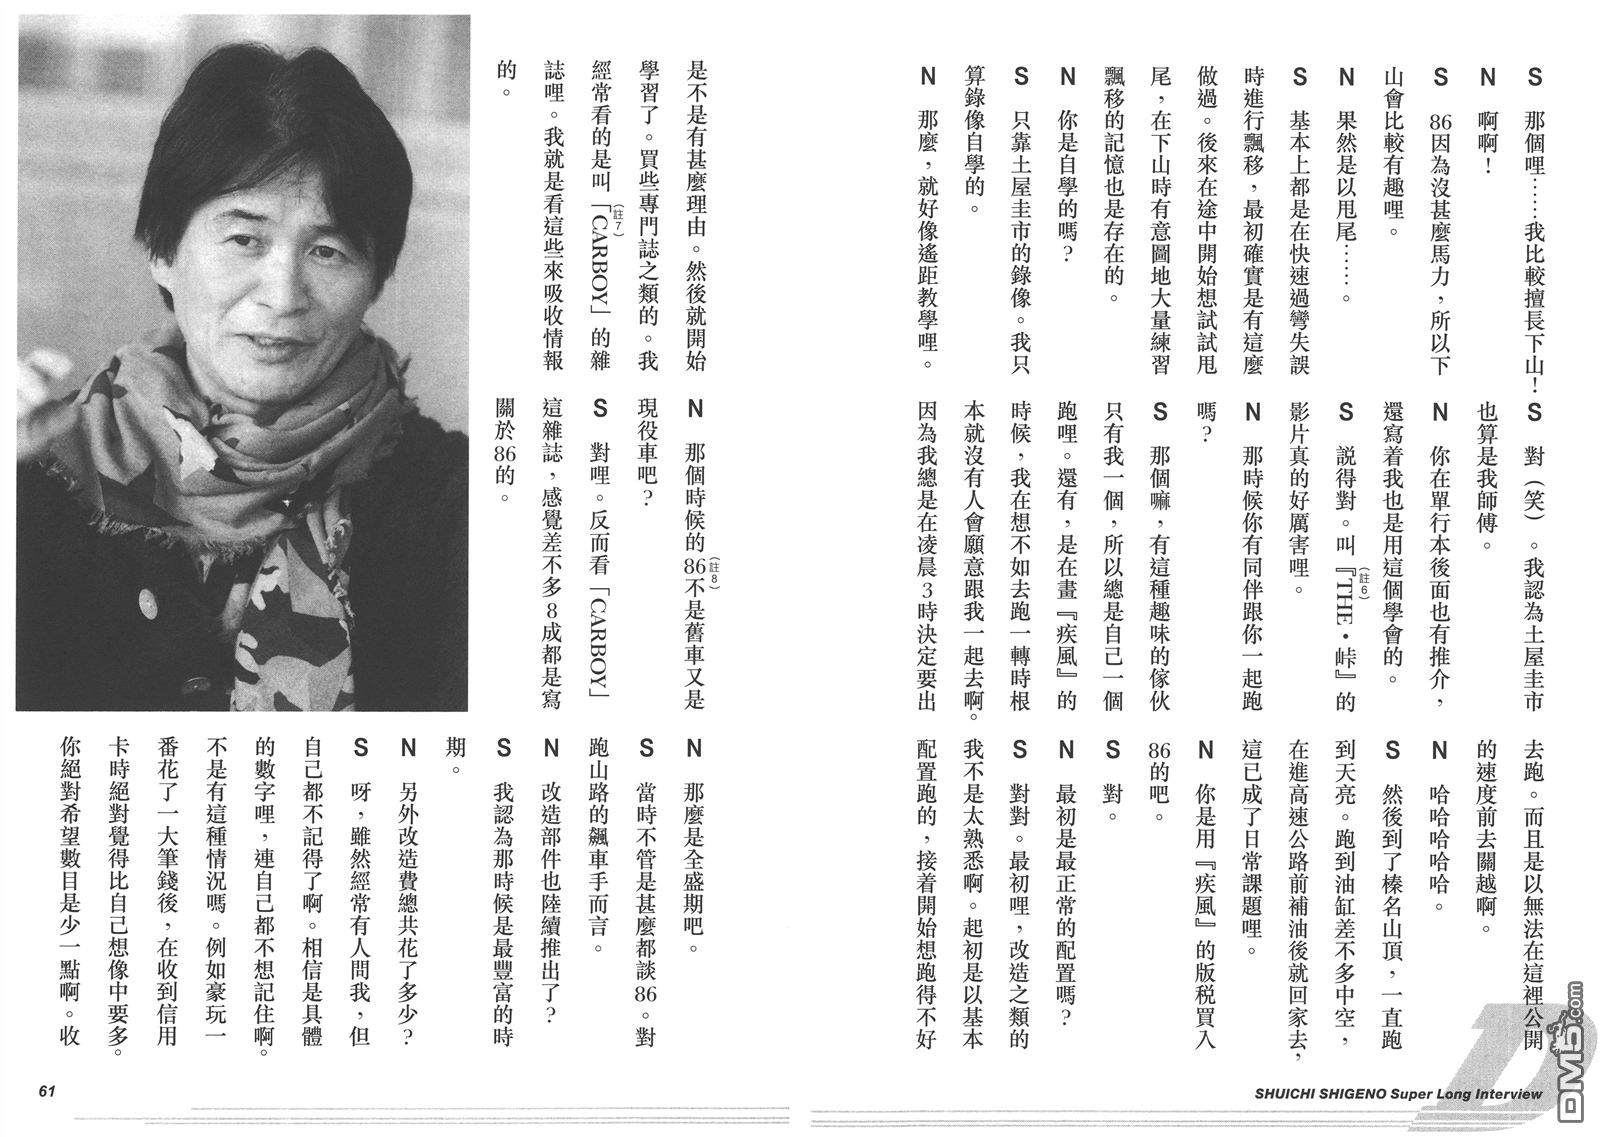 S　那個哩……我比較擅長下山！
N　啊啊！
S　86因為沒甚麼馬力，所以下
山會比較有趣哩。
N　果然是以甩尾……。
S　基本上都是在快速過彎失誤
時進行飄移，最初確實是有這麼
做過。後來在途中開始想試試甩
尾，在下山時有意圖地大量練習
飄移的記憶也是存在的。
N　你是自學的嗎？
S　只靠土屋圭市的錄像。我只
算錄像自學的。
N　那麼，就好像遙距教學哩。
S　對（笑）。我認為土屋圭市
也算是我師傅。
N　你在單行本後面也有推介，
還寫着我也是用這個學會的。
S　說得對。叫『THE・峠』的
（註6）
影片真的好厲害哩。
N　那時候你有同伴跟你一起跑
嗎？
S　那個嘛，有這種趣味的傢伙
只有我一個，所以總是自己一個
跑哩。還有，是在畫『疾風』的
時候，我在想不如去跑一轉時根
本就沒有人會願意跟我一起去啊。
因為我總是在凌晨3時決定要出
去跑。而且是以無法在這裡公開
的速度前去關越啊。
N　哈哈哈哈哈。
S　然後到了榛名山頂，一直跑
到天亮。跑到油缸差不多中空，
在進高速公路前補油後就回家去，
這已成了日常課題哩。
N　你是用『疾風』的版税買入
86的吧。
S　對。
N　最初是最正常的配置嗎？
S　對對。最初哩，改造之類的
我不是太熟悉啊。起初是以基本
配置跑的，接着開始想跑得不好
是不是有甚麼理由。然後就開始
學習了。買些專門誌之類的。我
經常看的是叫「CARBOY」的雜
（註7）
誌哩。我就是看這些來吸收情報
的。
N　那個時候的86不是舊車又是
（註8）
現役車吧？
S　對哩。反而看「CARBOY」
這雜誌，感覺差不多8成都是寫
關於86的。
N　那麼是全盛期吧。
S　當時不管是甚麼都談86。對
跑山路的飆車手而言。
N　改造部件也陸續推出了？
S　我認為那時候是最豐富的時
期。
N　另外改造費總共花了多少？
S　呀，雖然經常有人問我，但
自己都不記得了啊。相信是具體
的數字哩，連自己都不想記住啊。
不是有這種情況嗎。例如豪玩一
番花了一大筆錢後，在收到信用
卡時絕對覺得比自己想像中要多。
你絕對希望數目是少一點啊。收
61
SHUICHI SHIGENO Super Long Interview
D
DM5.com